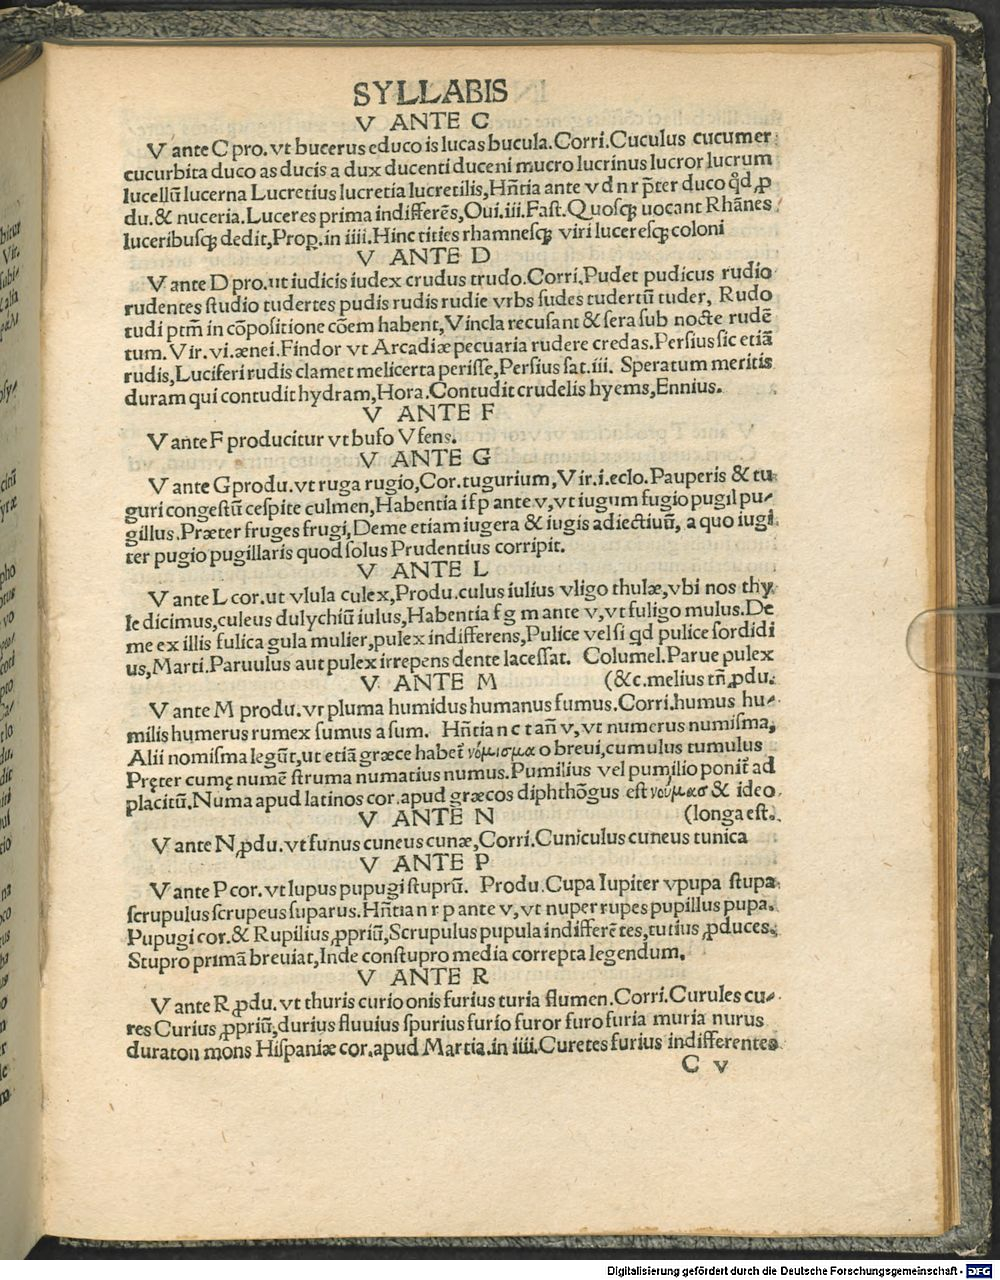 SYLLABIS
V ANTE C
V ante C pro. vt bucerus educo is lucas bucula. Corri. Cuculus cucumer
cucurbita duco as ducis a dux ducenti duceni mucro lucrinus lucror lucrum
lucellū lucerna Lucretius lucretia lucretilis, Hñtia ante v d n r p̄ter duco q̊d, ꝓ
du. & nuceria. Luceres prima indifferēs, Oui. iii. Fast. Quosqꝫ uocant Rhānes
luceribusqꝫ dedit, Prop. in iiii. Hinc tities rhamnesqꝫ viri luceresqꝫ coloni
V ANTE D
V ante D pro. ut iudicis iudex crudus trudo. Corri. Pudet pudicus rudio
rudentes studio tudertes pudis rudis rudie vrbs sudes tudertū tuder, Rudo
tudi ptm̄ in cōpositione cōem habent, Vincla recusant & sera sub nocte rudē
tum. Vir. vi. ænei. Findor vt Arcadiæ pecuaria rudere credas. Persius sic etiā
rudis, Luciferi rudis clamet melicerta perisse, Persius sat. iii. Speratum meritis
duram qui contudit hydram, Hora. Contudit crudelis hyems, Ennius.
V ANTE F
V ante F producitur vt bufo Vfens.
V ANTE G
V ante G produ. vt ruga rugio, Cor. tugurium, Vir. i. eclo. Pauperis & tu-
guri congestū cespite culmen, Habentia i f p ante v, vt iugum fugio pugil pu-
gillus. Præter fruges frugi, Deme etiam iugera & iugis adiectiuū, a quo iugi-
ter pugio pugillaris quod solus Prudentius corripit.
V ANTE L
V ante L cor. ut vlula culex, Produ. culus iulius vligo thulæ, vbi nos thy
le dicimus, culeus dulychiū iulus, Habentia f g m ante v, vt fuligo mulus. De
me ex illis fulica gula mulier, pulex indifferens, Pulice vel si qd pulice sordidi
us, Marti. Paruulus aut pulex irrepens dente lacessat. Columel. Parue pulex
V ANTE M (&c. melius tñ ꝓdu.
V ante M produ. vt pluma humidus humanus fumus. Corri. humus hu-
milis humerus rumex sumus a sum. Hñtia n c t añ v, vt numerus numisma,
Alii nomisma legūt, ut etiā græce habet̄ νόμισμα o breui, cumulus tumulus
Pręter cumę numē struma numatius numus. Pumilius vel pumilio ponit̄ ad
placitū. Numa apud latinos cor. apud græcos diphthōgus est νούμασ & ideo
V ANTE N (longa est.
V ante N ꝓdu. vt funus cuneus cunæ, Corri. Cuniculus cuneus tunica
V ANTE P
V ante P cor. vt lupus pupugi stuprū. Produ. Cupa Iupiter vpupa stupa
scrupulus scrupeus suparus. Hñtia n r p ante v, vt nuper rupes pupillus pupa.
Pupugi cor. & Rupilius ꝓpriū, Scrupulus pupula indifferētes, tutius ꝓduces.
Stupro primā breuiat, Inde constupro media correpta legendum.
V ANTE R
V ante R ꝓdu. vt thuris curio onis furius turia flumen. Corri. Curules cu-
res Curius ꝓpriū, durius fluuius spurius furio furor furo furia muria nurus
duraton mons Hispaniæ cor. apud Martia. in iiii. Curetes furius indifferentes
C v
Digitalisierung gefördert durch die Deutsche Forschungsgemeinschaft - DFG